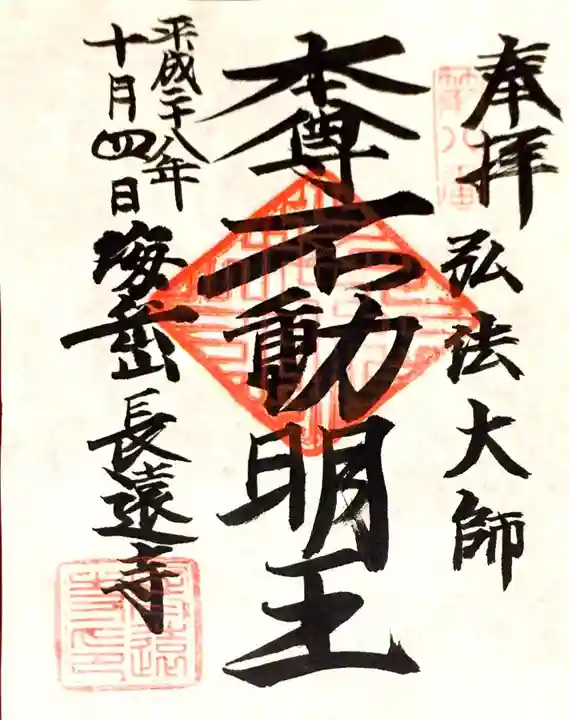 奉拝
弘法大師
本尊
不動明王
平成二十八年
十月四日
海岳山
長遠寺